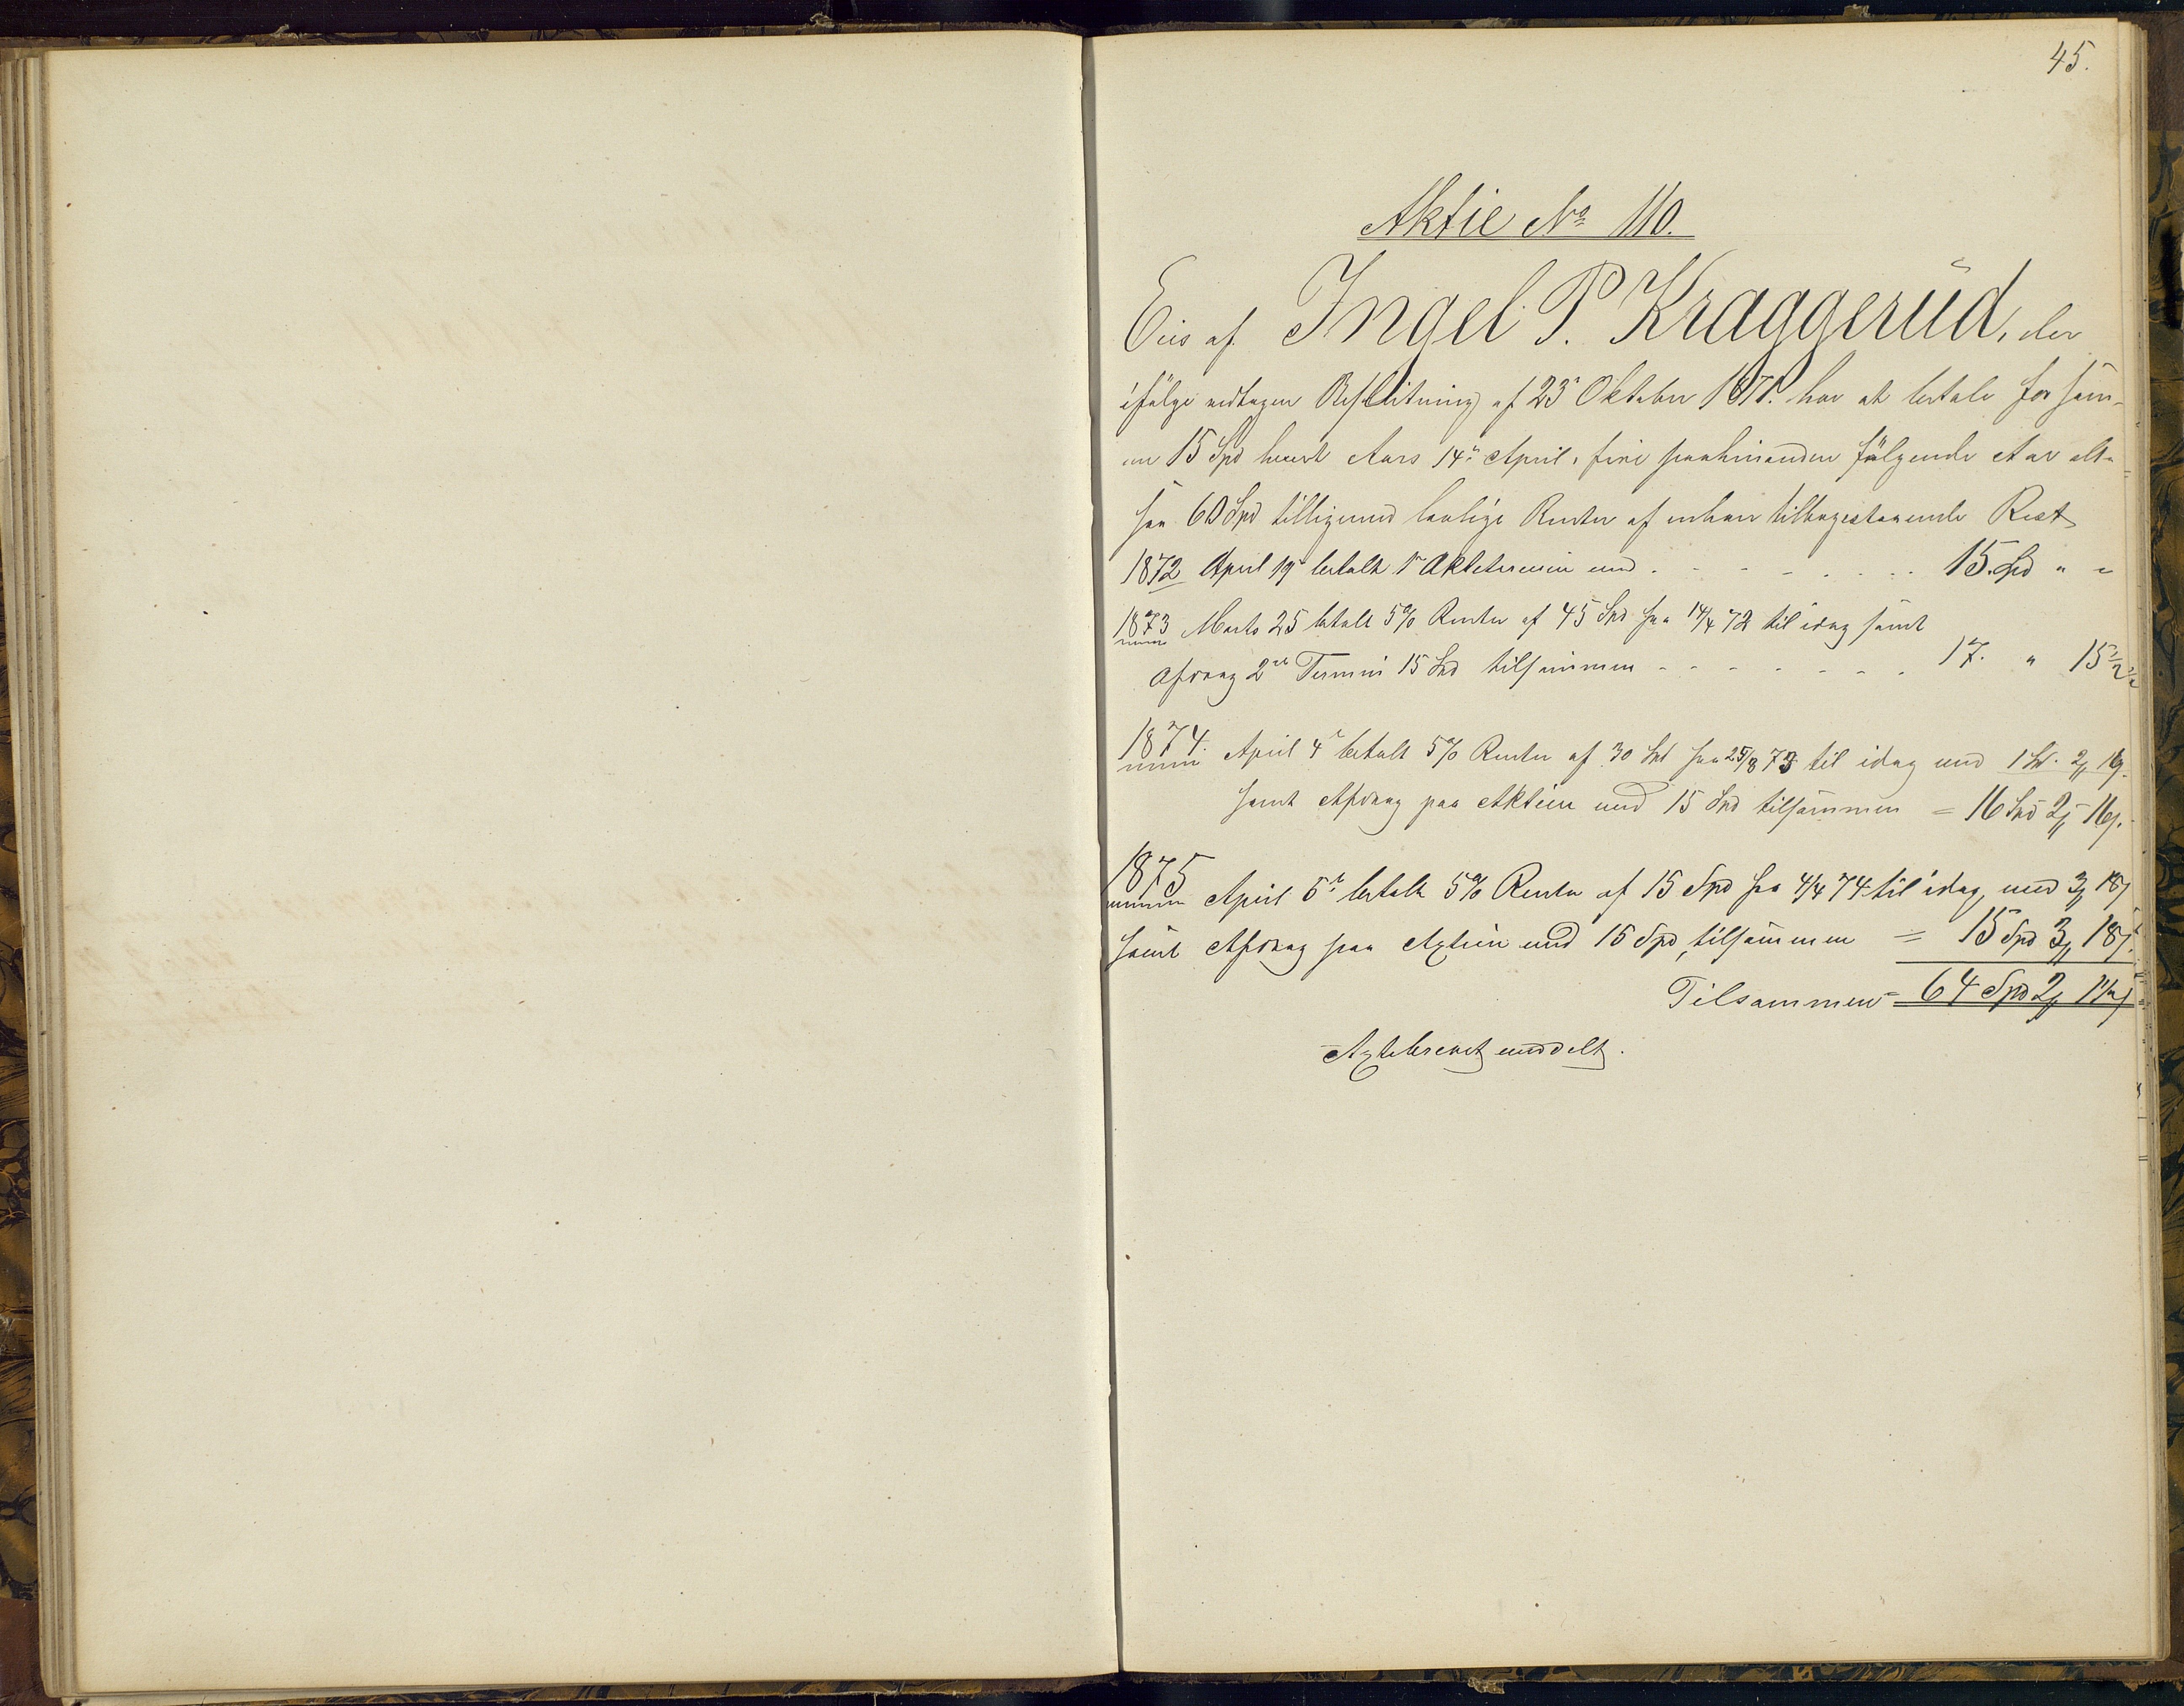 45.
Aktie No 110.
Eies af Ingel P. Kraggerüd, der
ifølge vedtagen Beslutning af 23de Oktober 1871 har at betale for sam-
me 15 Spd hvert Aars 14de April, fire paahinanden følgende Aar alt-
saa 60 Spd tilligemed lovlige Renter af enhver tilbagestaaende Rest
1872 April 19 betalt 1ste Aktietermin med . - - - - . - . . 15. Spd " "
1873 Marts 25 betalt 5% Renter af 45 Spd fra 14/4 72 til idag samt
Afdrag 2den Termin 15 Spd tilsammen - - - - - - - . 17. " 15 1/2
1874. April 4de betalt 5% Renter af 30 Spd fra 25/3 73 til idag med 1 Spd. 2 16
samt Afdrag paa Aktien med 15 Spd tilsammen = 16 Spd 2 16.
1875 April 5te betalt 5% Renter af 15 Spd fra 4/4 74 til idag, med 3 18
samt Afdrag paa Axtien med 15 Spd, tilsammen = 15 Spd 3 18.
Tilsammen = 64 Spd 2 1 1/2
Axtebrevet meddelt.